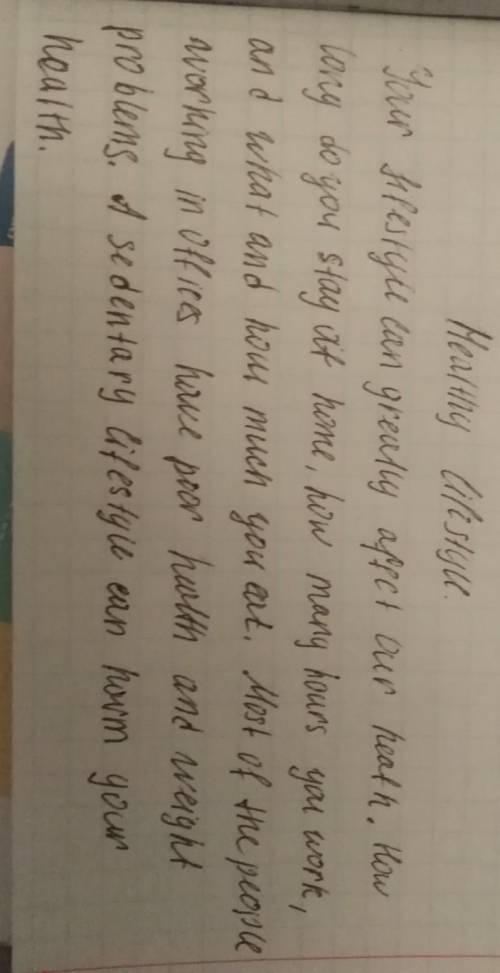 Healthy lifestyle.
Your lifestyle can greatly affect our heath. How
long do you stay at home, how many hours you work,
and what and how much you eat. Most of the people
working in offices have poor health and weight
problems. A sedentary lifestyle can harm your
health.